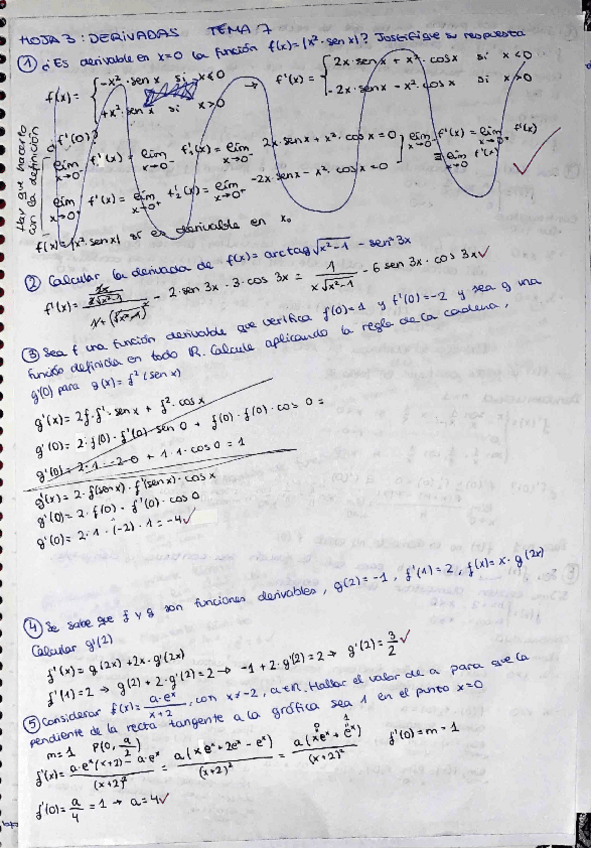 HOJA 3: DERIVADAS TEMA 7
① ¿Es derivable en x=0 la función f(x)=|x²·sen x|? Justifique su respuesta
f(x)= { -x²·sen x si x<0 → f'(x)= { 2x·sen x + x²·cos x si x<0
+x²·sen x si x>0 -2x·sen x - x²·cos x si x>0
Hay que hacerlo con la definición
¿f'(0)?
lím x→0⁻ f'(x) = lím x→0⁻ f'₁(x) = lím x→0⁻ 2x·sen x + x²·cos x = 0 } lím x→0⁻ f'(x) = lím x→0⁺ f'(x)
lím x→0⁺ f'(x) = lím x→0⁺ f'₂(x) = lím x→0⁺ -2x·sen x - x²·cos x = 0 ∃ lím x→0 f'(x)
f(x)=|x²·sen x| si es derivable en x₀
② Calcular la derivada de f(x)= arctag √(x²-1) - sen²3x
f'(x)= (2x/(2√(x²-1)))/(1+(√(x²-1))²) - 2·sen 3x·3·cos 3x = 1/(x√(x²-1)) - 6 sen 3x·cos 3x ✓
③ Sea f una función derivable que verifica f(0)=1 y f'(0)=-2 y sea g una
función definida en todo ℝ. Calcule aplicando la regla de la cadena,
g'(0) para g(x)=f²(sen x)
g'(x)= 2f·f'·sen x + f²·cos x
g'(0)= 2·f(0)·f'(0)·sen 0 + f(0)·f(0)·cos 0 =
g'(0)= 2·1·-2·0 + 1·1·cos 0 = 1
g'(x)= 2·f(sen x)·f'(sen x)·cos x
g'(0)= 2·f(0)·f'(0)·cos 0
g'(0)= 2·1·(-2)·1=-4 ✓
④ Se sabe que f y g son funciones derivables, g(2)=-1, f'(1)=2, f(x)=x·g(2x)
Calcular g'(2)
f'(x)= g(2x)+2x·g'(2x)
f'(1)=2 → g(2)+2·g'(2)=2 → -1+2·g'(2)=2 → g'(2)=3/2 ✓
⑤ Considerar f(x)= a·eˣ/(x+2), con x≠-2, a∈ℝ. Hallar el valor de a para que la
pendiente de la recta tangente a la gráfica sea 1 en el punto x=0
m=1 P(0, a/2)
f'(x)= (a·eˣ(x+2)-a·eˣ)/(x+2)² = a(xeˣ+2eˣ-eˣ)/(x+2)² = a(xeˣ+eˣ)/(x+2)² f'(0)=m=1
f'(0)= a/4 =1 → a=4 ✓